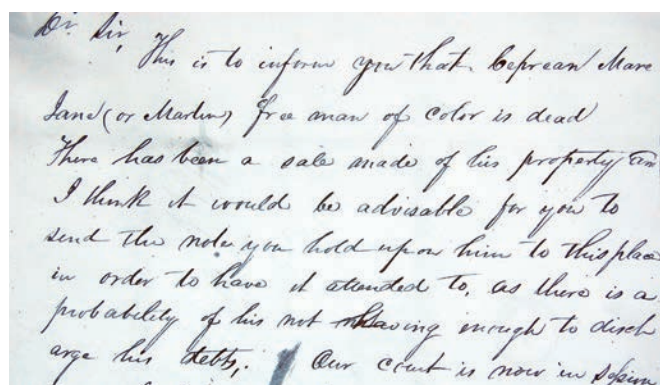 Dr. Sir,
This is to inform you that Ceprean Mare
Jane (or Martin) free man of color is dead
There has been a sale made of his property an
I think it would be advisable for you to
send the note you hold upon him to this place
in order to have it attended to, as there is a
probability of his not having enough to disch
arge his debts, Our court is now in session